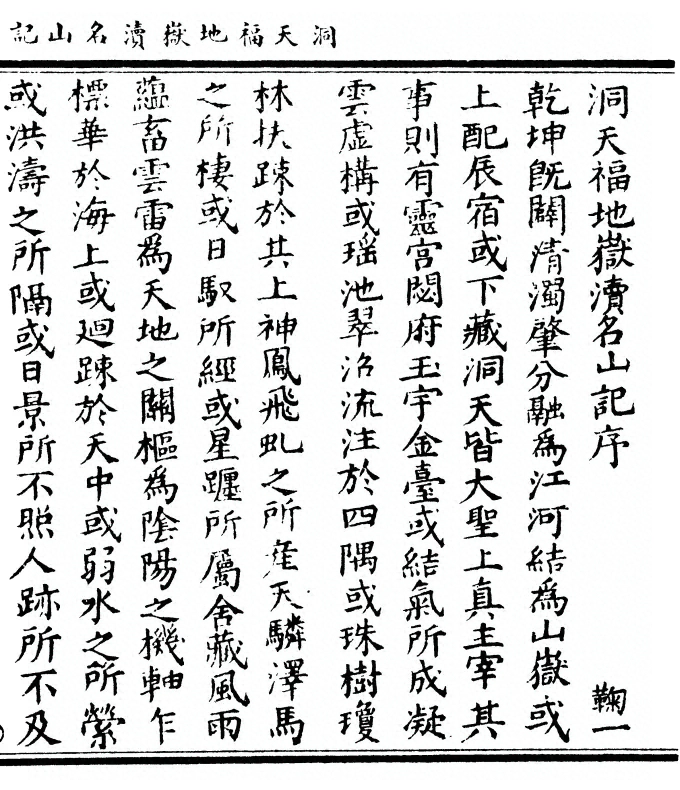 洞天福地嶽瀆名山記
洞天福地嶽瀆名山記序
鞠一
乾坤既闢清濁肇分融為江河結為山嶽或
上配辰宿或下藏洞天皆大聖上真主宰其
事則有靈宫閟府玉宇金臺或結氣所成凝
雲虛構或瑶池翠沼流注於四隅或珠樹瓊
林扶踈於其上神鳳飛虬之所産天驎澤馬
之所棲或日馭所經或星躔所屬含藏風雨
藴畜雲雷為天地之關樞為陰陽之機軸乍
標華於海上或迴踈於天中或弱水之所縈
或洪濤之所隔或日景所不照人跡所不及